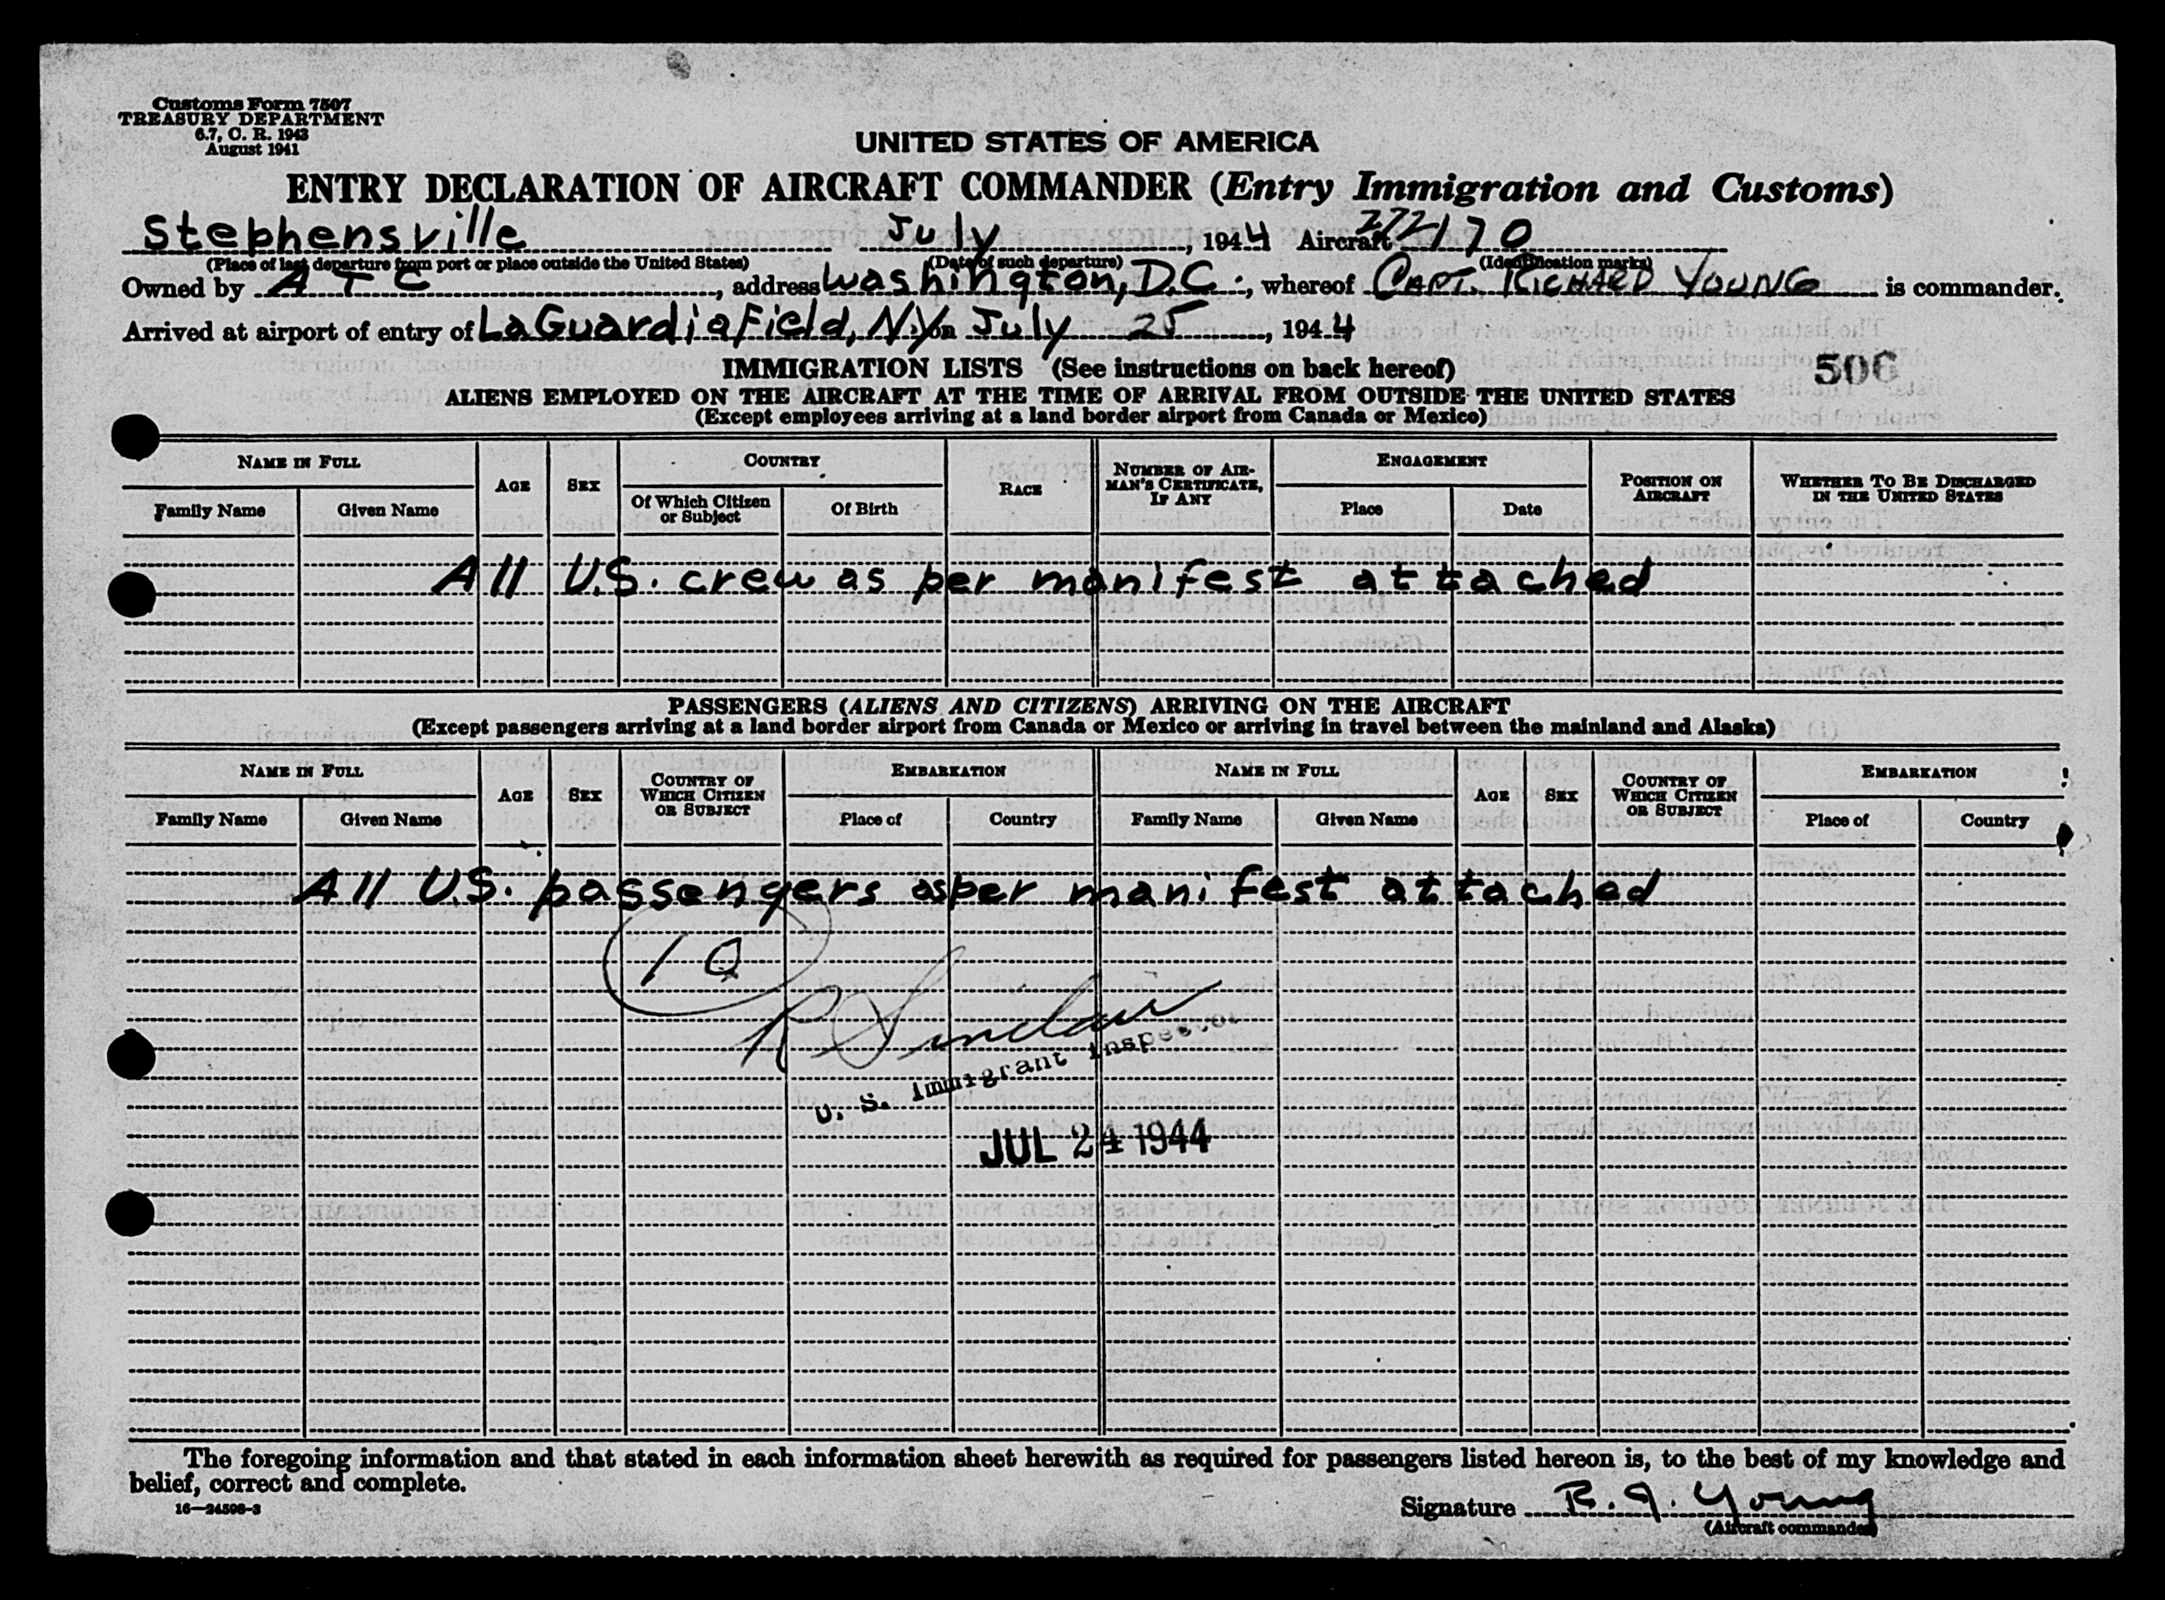 Customs Form 7507
TREASURY DEPARTMENT
6.7, C. R. 1943
August 1941
UNITED STATES OF AMERICA
ENTRY DECLARATION OF AIRCRAFT COMMANDER (Entry Immigration and Customs)
Stephensville July, 1944 Aircraft 272170
(Place of last departure from port or place outside the United States) (Date of such departure) (Identification marks)
Owned by ATC, address Washington, D.C., whereof CAPT. RICHARD YOUNG is commander.
Arrived at airport of entry of LaGuardia Field, N.Y. on July 25, 1944
IMMIGRATION LISTS (See instructions on back hereof)
506
ALIENS EMPLOYED ON THE AIRCRAFT AT THE TIME OF ARRIVAL FROM OUTSIDE THE UNITED STATES
(Except employees arriving at a land border airport from Canada or Mexico)
NAME IN FULL AGE SEX COUNTRY RACE NUMBER OF AIRMAN'S CERTIFICATE, IF ANY ENGAGEMENT POSITION ON AIRCRAFT WHETHER TO BE DISCHARGED IN THE UNITED STATES
Family Name Given Name Of Which Citizen or Subject Of Birth Place Date
All U.S. crew as per manifest attached
PASSENGERS (ALIENS AND CITIZENS) ARRIVING ON THE AIRCRAFT
(Except passengers arriving at a land border airport from Canada or Mexico or arriving in travel between the mainland and Alaska)
NAME IN FULL AGE SEX COUNTRY OF WHICH CITIZEN OR SUBJECT EMBARKATION NAME IN FULL AGE SEX COUNTRY OF WHICH CITIZEN OR SUBJECT EMBARKATION
Family Name Given Name Place of Country Family Name Given Name Place of Country
All U.S. passengers as per manifest attached
10
R Sinclair
U. S. Immigrant Inspector
JUL 24 1944
The foregoing information and that stated in each information sheet herewith as required for passengers listed hereon is, to the best of my knowledge and
belief, correct and complete.
16—24598-3
Signature R. J. Young
(Aircraft commander)